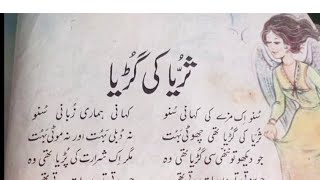 ثریا کی گڑیا
سنو اک مزے کی کہانی سنو کہانی ہماری زبانی سنو
ثریا کی گڑیا تھی چھوٹی بہت نہ دبلی بہت اور نہ موٹی بہت
جو دیکھو تو ننھی سی گڑیا تھی وہ مگر اک شرارت کی پڑیا تھی وہ